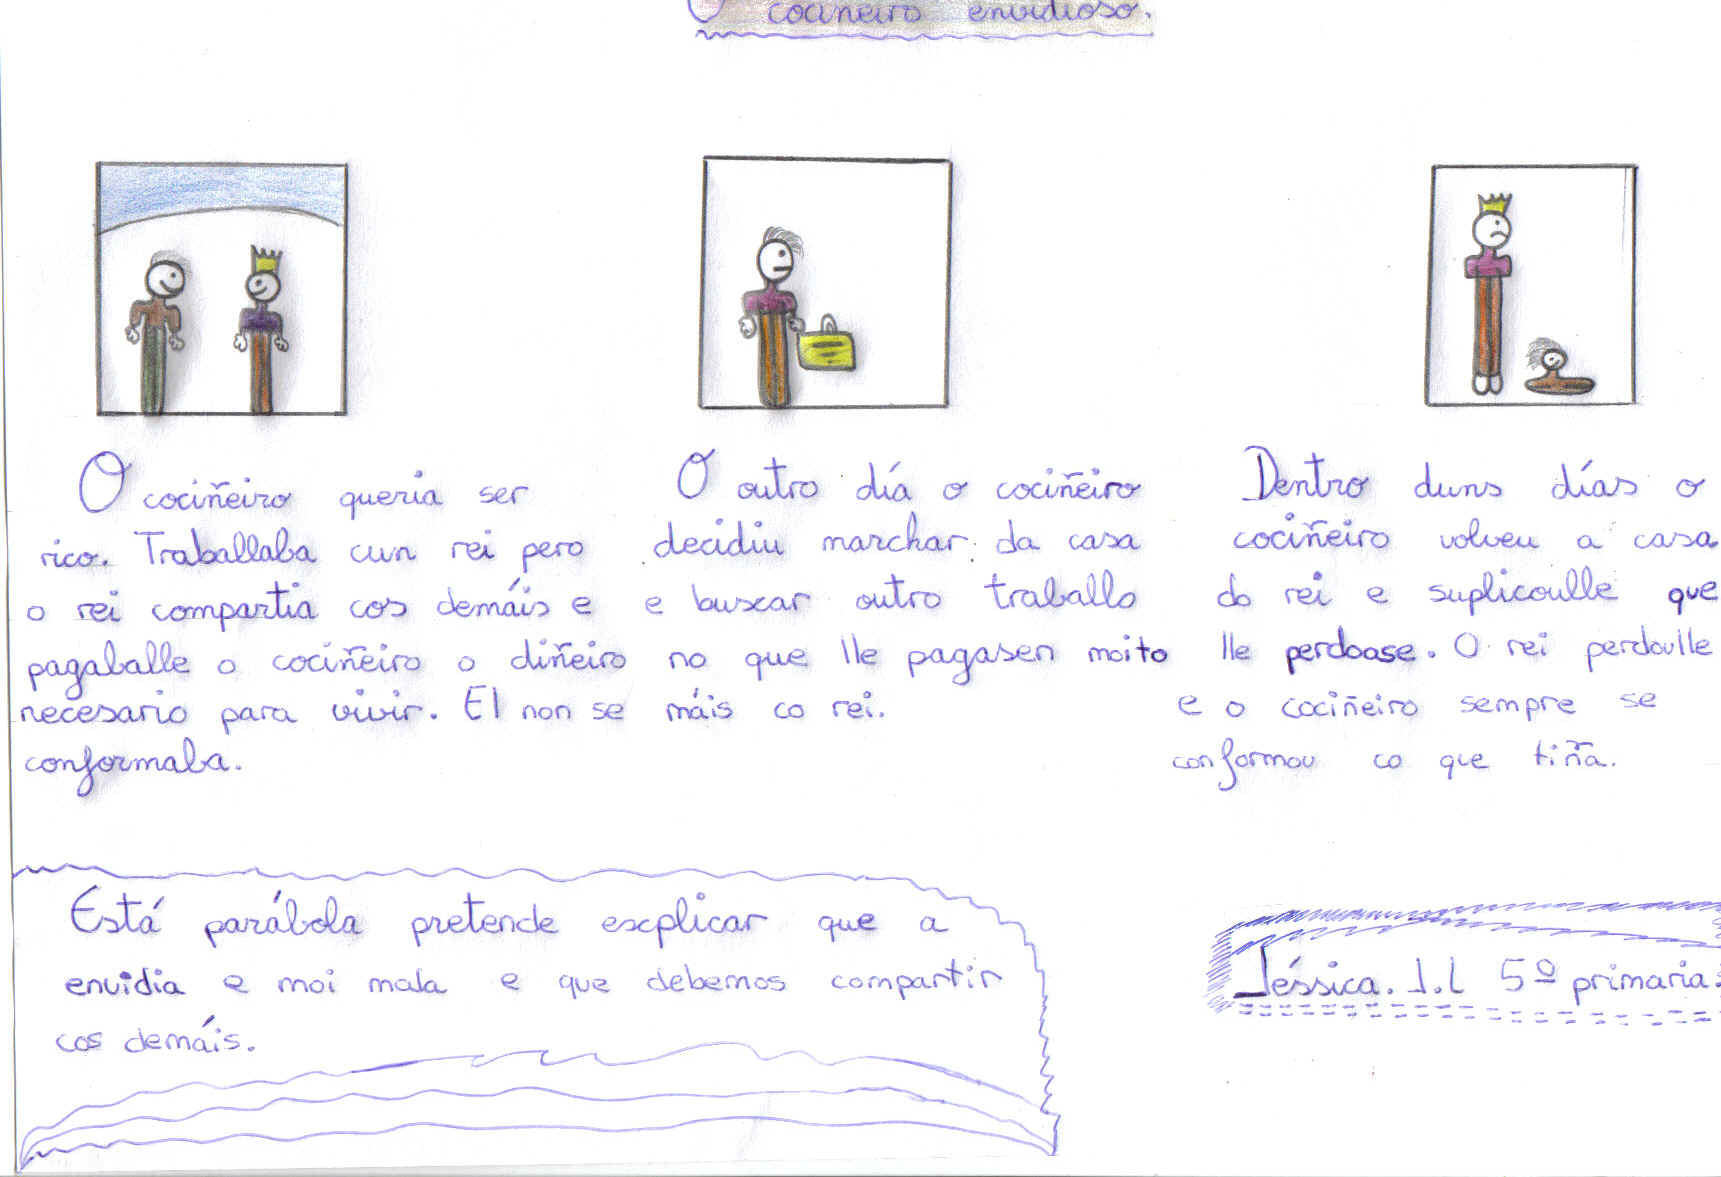 O cociñeiro envidioso.
O cociñeiro queria ser
rico. Traballaba cun rei pero
o rei compartia cos demáis e
pagaballe o cociñeiro o diñeiro
necesario para vivir. El non se
conformaba.
O outro día o cociñeiro
decidiu marchar da casa
e buscar outro traballo
no que lle pagasen moito
máis co rei.
Dentro duns días o
cociñeiro volveu a casa
do rei e suplicoulle que
lle perdoase. O rei perdoulle
e o cociñeiro sempre se
conformou co que tiña.
Está parábola pretende escplicar que a
envidia e moi mala e que debemos compartir
cos demáis.
Jéssica. J.L 5º primaria.